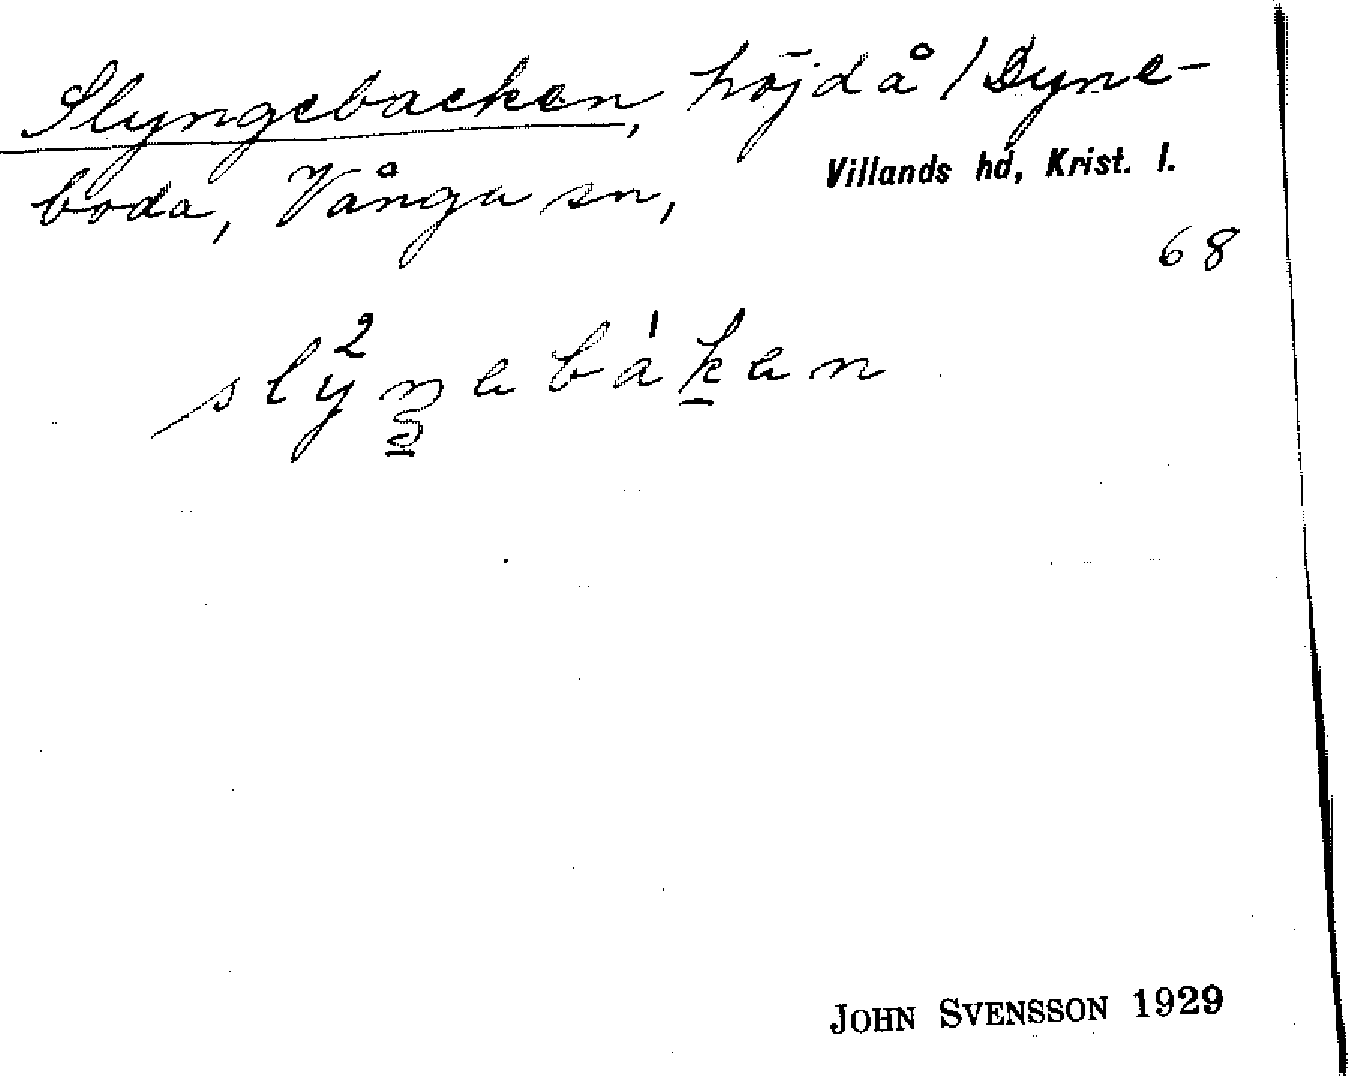 Slyngebacken, höjd å /Dyne-
boda, Vånga sn,
Villands hd, Krist. l.
68
JOHN SVENSSON 1929